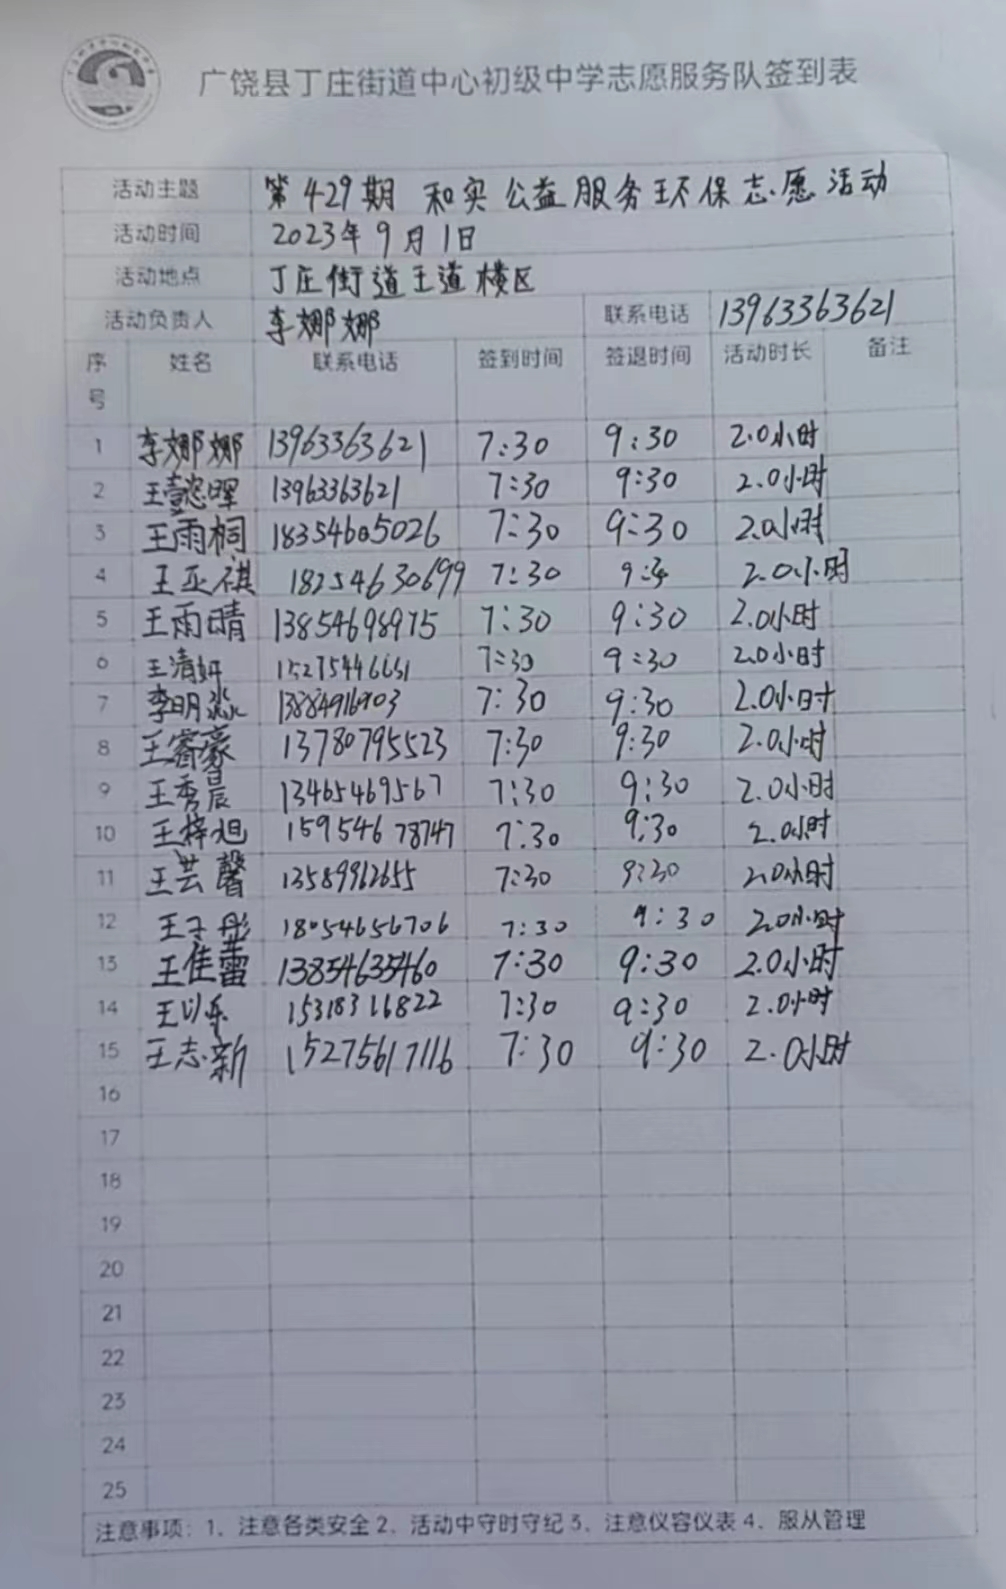 广饶县丁庄街道中心初级中学志愿服务队签到表
活动主题 第429期 和实公益服务环保志愿活动
活动时间 2023年9月1日
活动地点 丁庄街道王道楼区
活动负责人 李娜娜 联系电话 13963363621
序号 姓名 联系电话 签到时间 签退时间 活动时长 备注
1 李娜娜 13963363621 7:30 9:30 2.0小时
2 王懿晖 13963363621 7:30 9:30 2.0小时
3 王雨桐 18354605026 7:30 9:30 2.0小时
4 王亚祺 18254630699 7:30 9:30 2.0小时
5 王雨晴 13854698975 7:30 9:30 2.0小时
6 王清妍 15275446651 7:30 9:30 2.0小时
7 李明淼 13884916903 7:30 9:30 2.0小时
8 王睿豪 13780795523 7:30 9:30 2.0小时
9 王秀晨 13465469567 7:30 9:30 2.0小时
10 王梓旭 15954678747 7:30 9:30 2.0小时
11 王芸馨 13589962655 7:30 9:30 2.0小时
12 王子彤 18054656706 7:30 9:30 2.0小时
13 王佳蕾 13854635460 7:30 9:30 2.0小时
14 王以乐 15318316822 7:30 9:30 2.0小时
15 王志新 15275617116 7:30 9:30 2.0小时
16
17
18
19
20
21
22
23
24
25
注意事项：1、注意各类安全 2、活动中守时守纪 3、注意仪容仪表 4、服从管理